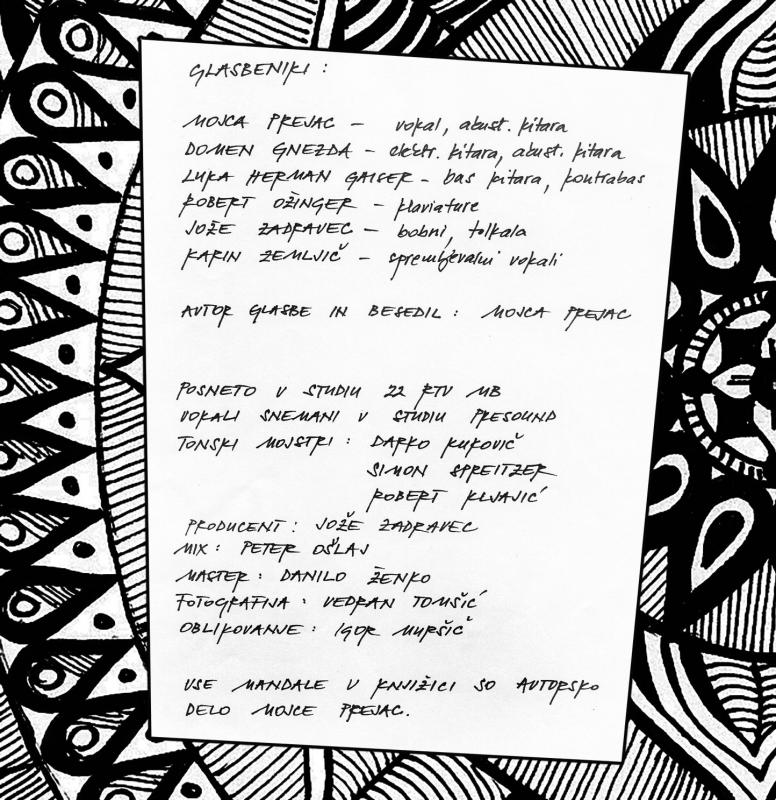 GLASBENIKI :
MOJCA PREJAC – vokal, akust. kitara
DOMEN GNEZDA – elektr. kitara, akust. kitara
LUKA HERMAN GAISER – bas kitara, kontrabas
ROBERT OŽINGER – klaviature
JOŽE ZADRAVEC – bobni, tolkala
KARIN ZEMLJIČ – spremljevalni vokali
AVTOR GLASBE IN BESEDIL : MOJCA PREJAC
POSNETO V STUDIU 22 RTV MB
VOKALI SNEMANI V STUDIU PRESOUND
TONSKI MOJSTRI : DARKO KUKOVIČ
SIMON SPREITZER
ROBERT KLJAJIĆ
PRODUCENT : JOŽE ZADRAVEC
MIX : PETER OŠLAJ
MASTER : DANILO ŽENKO
FOTOGRAFIJA : VEDRAN TOMŠIĆ
OBLIKOVANJE : IGOR MURŠIČ
VSE MANDALE V KNJIŽICI SO AVTORSKO
DELO MOJCE PREJAC.